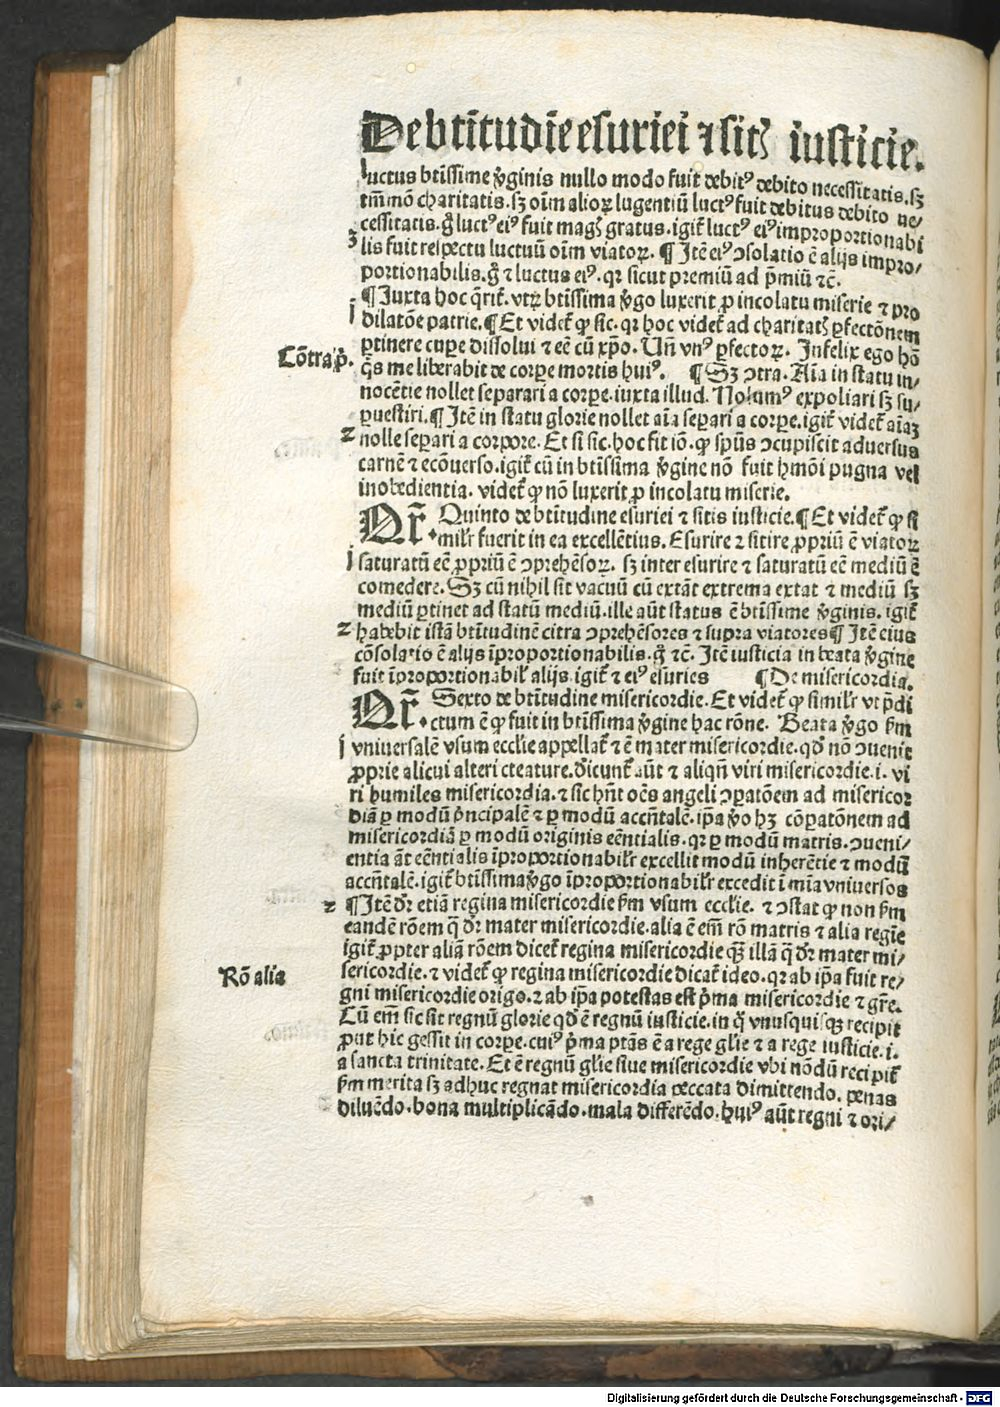 De btĩtudĩe esuriei ⁊ sitꝭ iusticie.
luctus btĩssime v̾ginis nullo modo fuit debitꝰ debito necessitatis. sꝫ
tm̃mõ charitatis. sꝫ oĩm alioꝝ lugentiũ luctꝰ fuit debitus debito ne/
cessitatis. g̊ luctꝰ eiꝰ fuit magꝭ gratus. igit̃ luctꝰ eiꝰ improportionabi
3 lis fuit respectu luctuũ oĩm viatoꝝ. ¶ Itẽ eiꝰ ↄsolatio ẽ alijs impro/
portionabilis. g̊ ⁊ luctus eiꝰ. qꝛ sicut premiũ ad p̃miũ ⁊c̃.
¶ Iuxta hoc q̃rit̃. vtꝝ btĩssima v̾go luxerit ꝓ incolatu miserie ⁊ pro
j dilatõe patrie. ¶ Et videt̃ ꝙ sic. qꝛ hoc videt̃ ad charitatꝭ ꝑfectõnem
Cõtra p̊.
ꝑtinere cupe dissolui ⁊ eẽ cũ xp̃o. Uñ vnꝰ ꝑfectoꝝ. Infelix ego hõ
q̃s me liberabit de corꝑe mortis huiꝰ. ¶ Sꝫ ↄtra. Aĩa in statu in/
nocẽtie nollet separari a corꝑe. iuxta illud. Nolumꝰ expoliari sꝫ su/
ꝑuestiri. ¶ Itẽ in statu glorie nollet aĩa seꝑari a corꝑe. igit̃ videt̃ aĩaꝫ
2 nolle seꝑari a corpore. Et si sic. hoc fit iõ. ꝙ spũs ↄcupiscit aduersus
carnẽ ⁊ ecõuerso. igit̃ cũ in btĩssima v̾gine nõ fuit hmõi pugna vel
inobedientia. videt̃ ꝙ nõ luxerit ꝓ incolatu miserie.
Qr̃. Quinto de btĩtudine esuriei ⁊ sitis iusticie. ¶ Et videt̃ ꝙ si
mil̃r fuerit in ea excellẽtius. Esurire ⁊ sitire ꝓpriũ ẽ viatoꝝ
j saturatũ eẽ ꝓpriũ ẽ ↄprehẽsoꝝ. sꝫ inter esurire ⁊ saturatũ eẽ mediũ ẽ
comedere. Sꝫ cũ nihil sit vacuũ cũ extãt extrema extat ⁊ mediũ sꝫ
mediũ ꝑtinet ad statũ mediũ. ille aũt status ẽ btĩssime v̾ginis. igit̃
2 habebit istã btĩtudinẽ citra ↄprehẽsores ⁊ supra viatores ¶ Itẽ eius
cõsolatio ẽ alijs ĩproportionabilis. g̊ ⁊c̃. Itẽ iusticia in beata v̾gine
fuit ĩproportionabil̃ alijs. igit̃ ⁊ eiꝰ esuries ¶ De misericordia.
Qr̃. Sexto de btĩtudine misericordie. Et videt̃ ꝙ simil̃r vt p̃di
ctum ẽ ꝙ fuit in btĩssima v̾gine hac rõne. Beata v̾go ẜm
j vniuersalẽ vsum ecclie appellat̃ ⁊ ẽ mater misericordie. qđ nõ ↄuenit
ꝓprie alicui alteri creature. dicunt̃ aũt ⁊ aliqñ viri misericordie. i. vi
ri humiles misericordia. ⁊ sic hñt oẽs angeli ↄꝑatõem ad misericor
diã ꝑ modũ p̃ncipalẽ ⁊ ꝑ modũ accñtalẽ. ip̃a v̾o hꝫ cõꝑatõnem ad
misericordiã ꝑ modũ originis eẽntialis. qꝛ ꝑ modũ matris. ↄueni/
entia ãt eẽntialis ĩproportionabil̃r excellit modũ inherẽtie ⁊ modũ
accñtalẽ. igit̃ btĩssima v̾go ĩproportionabil̃r excedit ĩ mĩa vniuersos
2 ¶ Itẽ dr̃ etiã regina misericordie ẜm vsum ecclie. ⁊ ↄstat ꝙ non ẜm
eandẽ rõem q̃ dr̃ mater misericordie. alia ẽ em̃ rõ matris ⁊ alia regĩe
igit̃ ꝓpter aliã rõem dicet̃ regina misericordie qꝫ̃ illã q̃ dr̃ mater mi/
Rõ alia
sericordie. ⁊ videt̃ ꝙ regina misericordie dicat̃ ideo. qꝛ ab ip̃a fuit re/
gni misericordie origo. ⁊ ab ip̃a potestas est p̃ma misericordie ⁊ gr̃e.
Cũ em̃ sic sit regnũ glorie qđ ẽ regnũ iusticie. in q̊ vnusquisqꝫ recipit
ꝓut hic gessit in corꝑe. cuiꝰ p̃ma ptãs ẽ a rege glie ⁊ a rege iusticie. i.
a sancta trinitate. Et ẽ regnũ glie siue misericordie vbi nõdũ recipit̃
ẜm merita sꝫ adhuc regnat misericordia peccata dimittendo. penas
diluẽdo. bona multiplicãdo. mala differẽdo. huiꝰ aũt regni ⁊ ori/
Digitalisierung gefördert durch die Deutsche Forschungsgemeinschaft - DFG